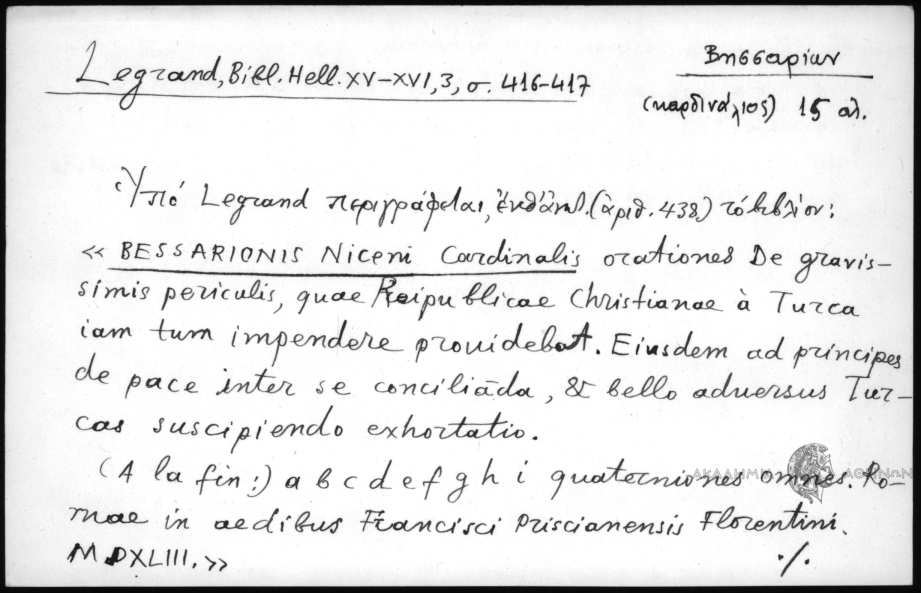 Legrand, Bibl. Hell. XV–XVI, 3, σ. 416–417
Βησσαρίων
(καρδινάλιος) 15 αἰ.
Ὑπό Legrand περιγράφεται, ἔνθ' ἀνωτ. (ἀριθ. 438) τό βιβλίον:
« BESSARIONIS Niceni Cardinalis orationes De gravis–
simis periculis, quae Reipublicae Christianae à Turca
iam tum impendere prouidebat. Eiusdem ad principes
de pace inter se conciliāda, & bello aduersus Tur–
cas suscipiendo exhortatio.
(A la fin:) a b c d e f g h i quaterniones omnes. Ro–
mae in aedibus Francisci Priscianensis Florentini.
M.DXLIII.»
./.
ΑΚΑΔΗΜΙΑ ΑΘΗΝΩΝ